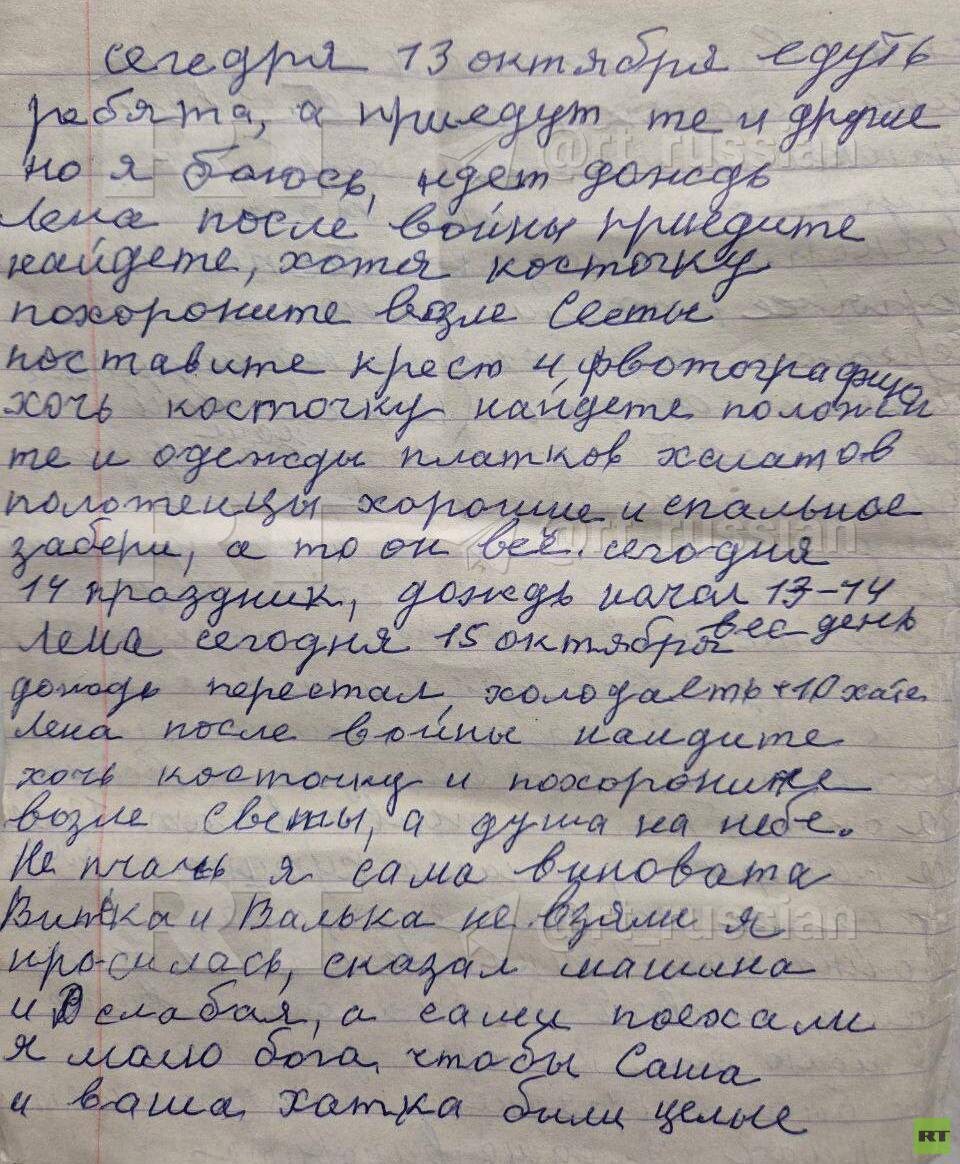 сегедря 13 октября едуть
ребята, а приедут те и другие
но я боюсь, идет дождь
Лена после войны приедите
найдете, хотя косточку
похороните возле Сеты
поставите крест и фвотографию
хочь косточку найдете положи
те и одежды платков халатов
полотенцы хорошие и спальное
забери, а то он веч. сегодня
14 праздник, дождь начал 13-14
Лена сегодня 15 октября вес день
дождь перестал, холодаеть +10 хате
Лена после войны найдите
хочь косточку и похороните
возле Светы, а душа на небе.
Не плачь я сама виновата
Витька и Валька не взяли я
просилась, сказал машина
и слабая, а сами поехали
я молю бога, чтобы Саша
и ваша хатка били целые
@rt_russian
@rt_russian
@rt_russian
RT